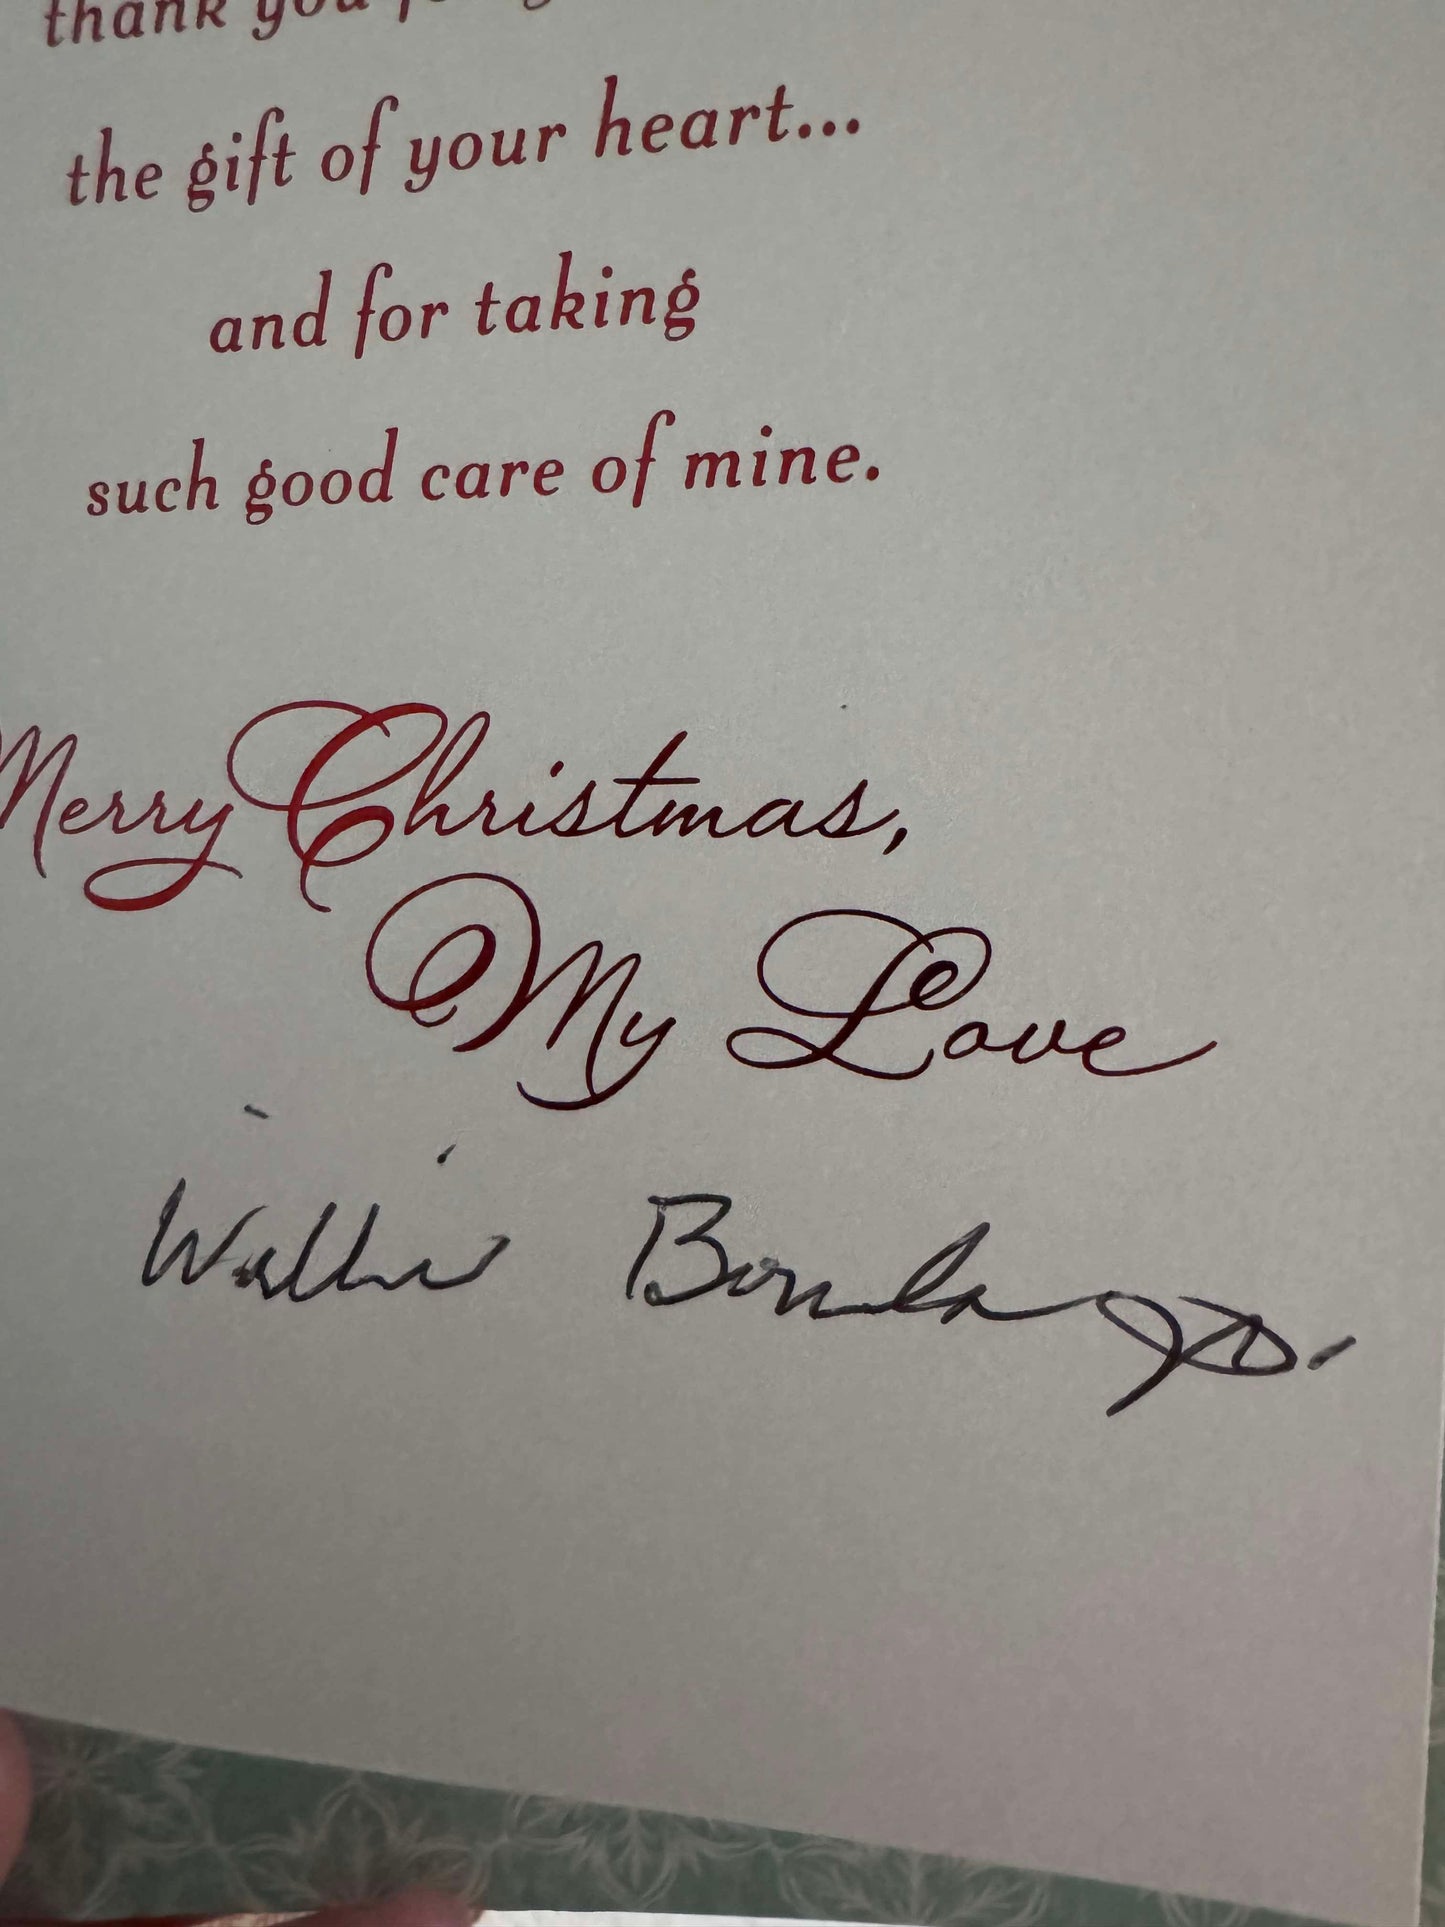 thank you
the gift of your heart...
and for taking
such good care of mine.
Merry Christmas,
My Love
Willie